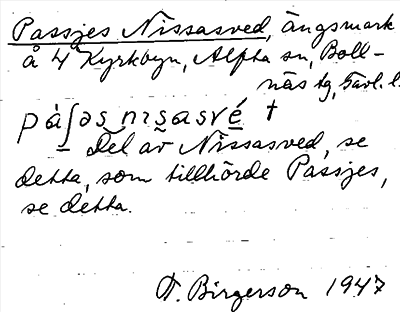 Passjes Nissasved, ängsmark
å 4 Kyrkbyn, Alfta sn, Boll-
näs tg, Gävl. l.
pàʃəs nɪsasvé †
Del av Nissasved, se
detta, som tillhörde Passjes,
se detta.
F. Birgerson 1947